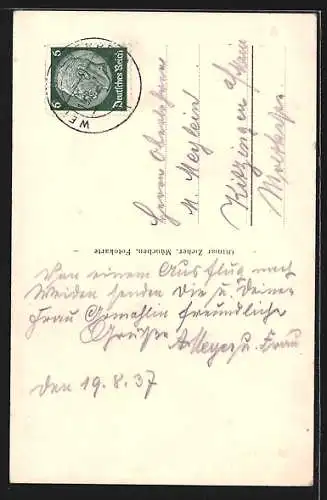 Deutsches Reich
6 6
WEI
Herrn
M. Meylein
Kitzingen a/Main
Moltkestr.
Ottmar Zieher, München, Fotokarte
Von einem Ausflug nach
Weiden senden Die u. Deiner
Frau Gemahlin freundliche
Grüße A. Meyer u. Frau
den 19.8.37